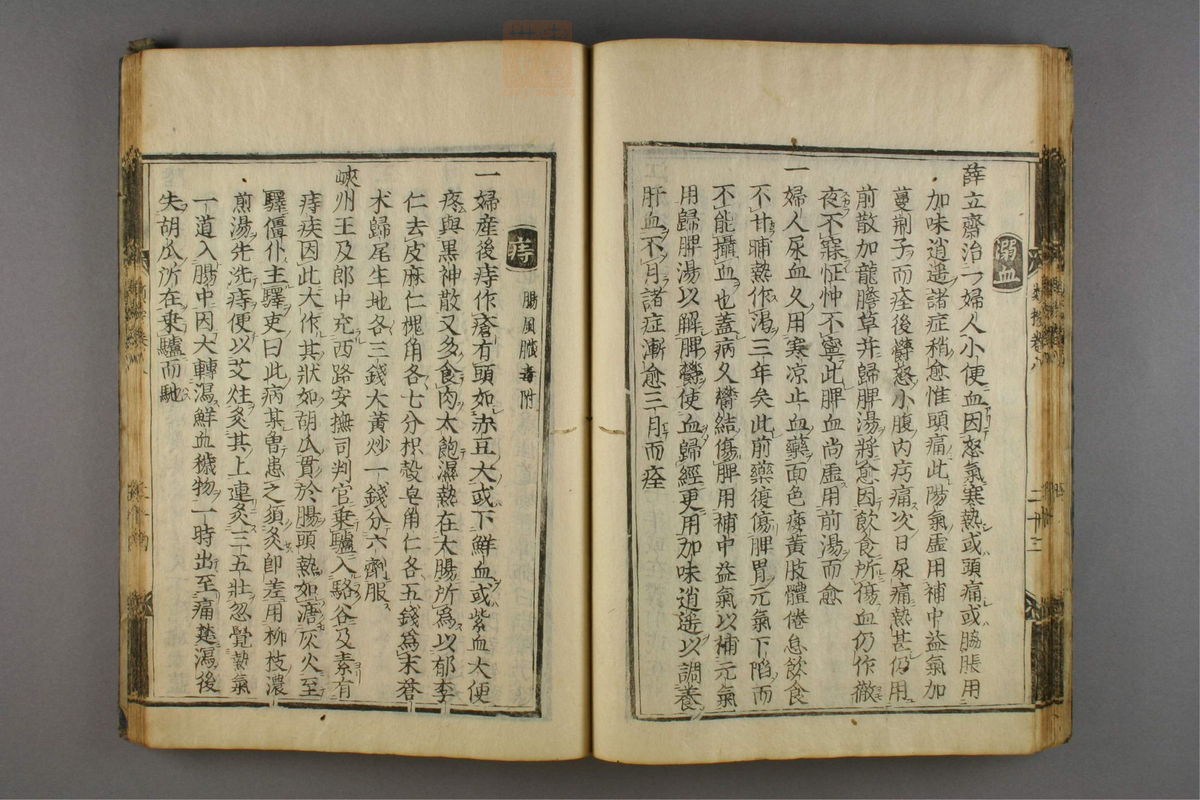 溺血
薛立齋治一婦人小便血因怒氣寒熱或頭痛或脇脹用
加味逍遥諸症稍愈惟頭痛此陽氣虛用補中益氣加
蔓荆子而痊後欝怒小腹内疞痛次日尿痛熱甚仍用
前散加龍膽草并歸脾湯將愈因飲食所傷血仍作徹
夜不寐怔忡不寧此脾血尚虛用前湯而愈
一婦人尿血久用寒凉止血藥面色痿黄肢體倦怠飲食
不甘晡熱作渴三年矣此前藥復傷脾胃元氣下陷而
不能攝血也蓋病久欝結傷脾用補中益氣以補元氣
用歸脾湯以解脾欝使血歸經更用加味逍遥以調養
肝血不月諸症漸愈三月而痊
痔 腸風臟毒附
一婦産後痔作瘡有頭如赤豆大或下鮮血或紫血大便
疼與黑神散又多食肉太飽濕熱在大腸所爲以郁李
仁去皮麻仁槐角各七分枳殻皂角仁各五錢爲末蒼
术歸尾生地各三錢大黄炒一錢分六劑服
峽州王及郎中充西路安撫司判官乗驢入駱谷及素有
痔疾因此大作其狀如胡瓜貫於腸頭熱如溏灰火至
驛僵仆主驛吏曰此病某曽患之須灸即差用柳枝濃
煎湯先洗痔便以艾炷灸其上連灸三五壯忽覺熱氣
一道入腸中因大轉瀉鮮血穢物一時出至痛楚瀉後
失胡瓜所在乗驢而馳